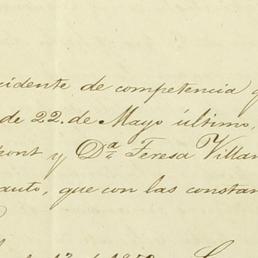 cidente de competencia
de 22. de Mayo último,
y Dª Teresa Villar
auto, que con las constan
de 18